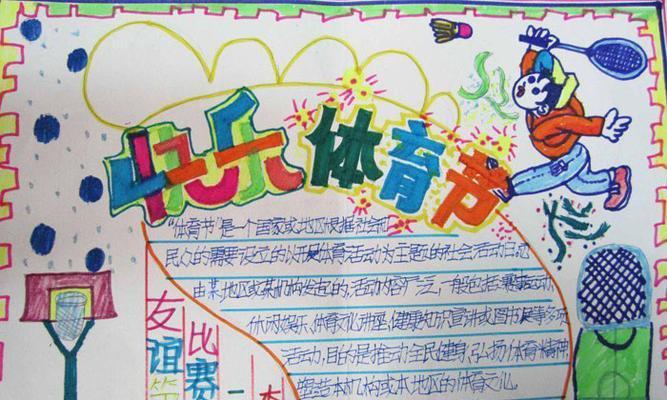 快乐体育节
“体育节”是一个国家或地区根据社会和
民众的需要设立的以开展体育活动为主题的社会活动日
由某地区或某机构发起的,活动内容广泛,一般包括:竞赛活动,
休闲娱乐、体育文化讲座,健康知识宣讲或图书展等多项
活动,目的是推动全民健身,弘扬体育精神,
塑造本机构或本地区的体育文化。
友谊第
比赛